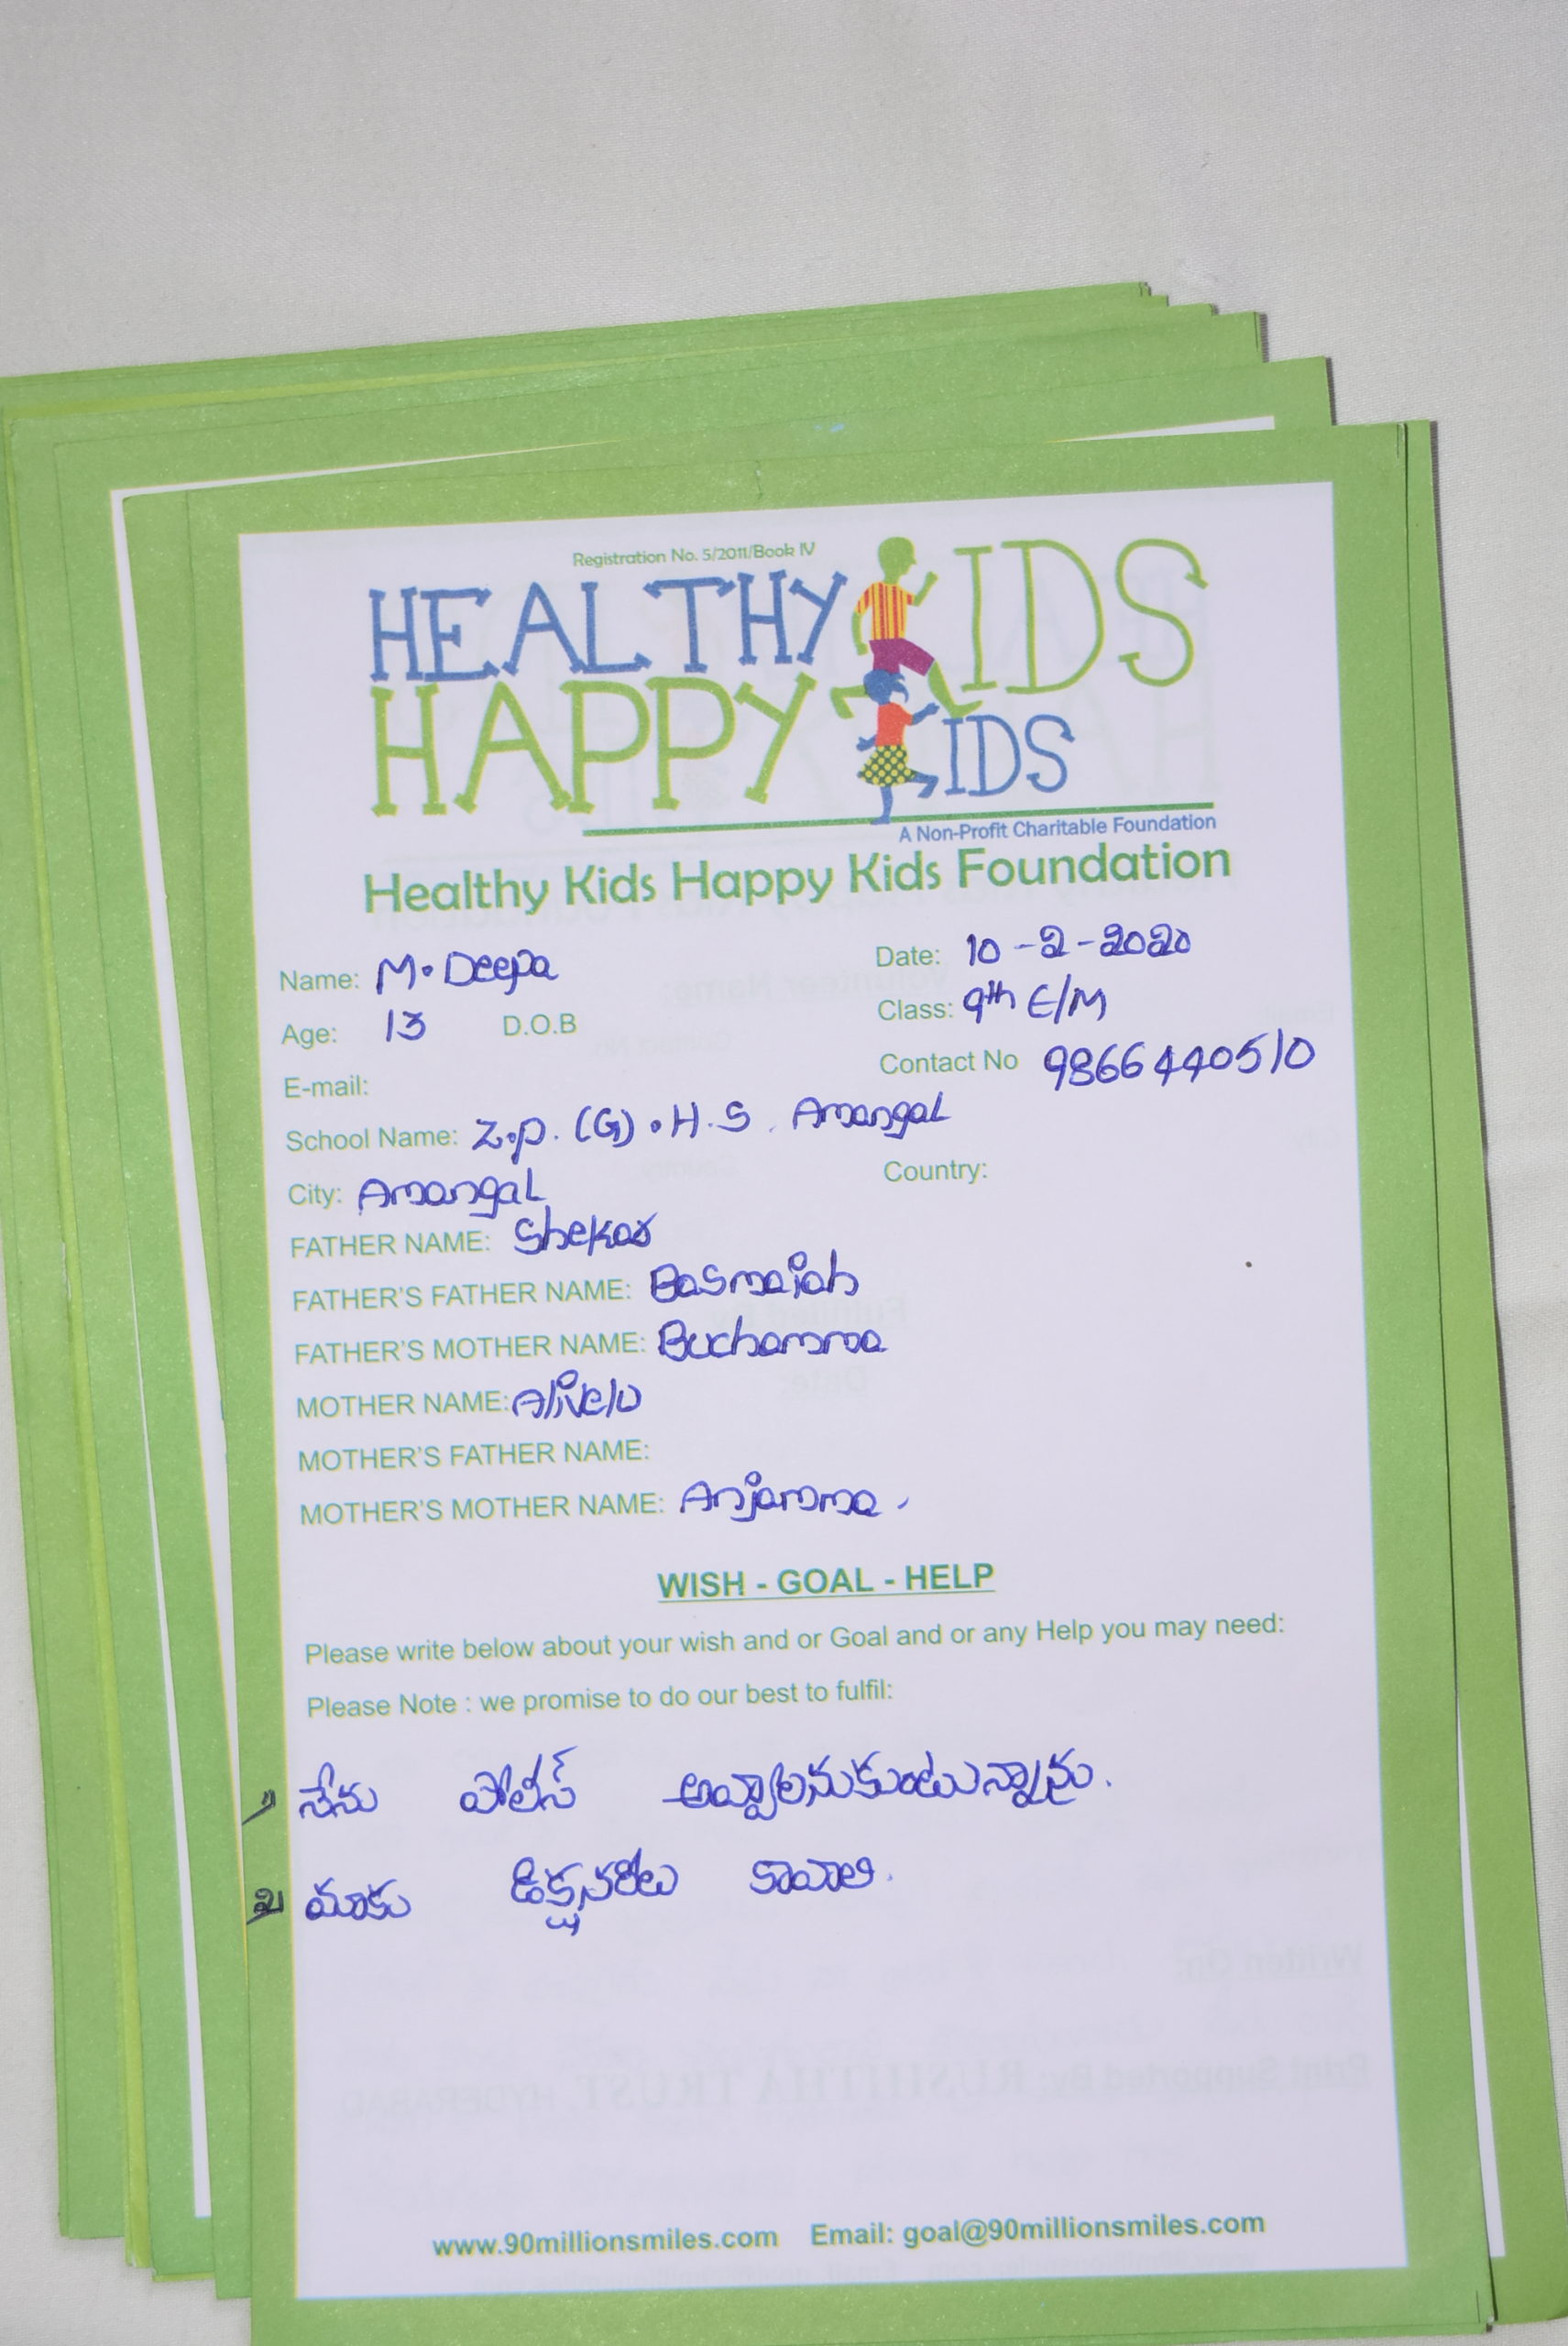 Registration No. 5/2011/Book IV
HEALTHY KIDS
HAPPY KIDS
A Non-Profit Charitable Foundation
Healthy Kids Happy Kids Foundation
Name: M. Deepa Date: 10-2-2020
Age: 13 D.O.B Class: 9th E/M
E-mail: Contact No 9866440510
School Name: Z.P.(G).H.S. Amangal
City: Amangal Country:
FATHER NAME: Shekar
FATHER'S FATHER NAME: Basmaiah
FATHER'S MOTHER NAME: Buchamma
MOTHER NAME: Alivelu
MOTHER'S FATHER NAME:
MOTHER'S MOTHER NAME: Anjamma.
WISH - GOAL - HELP
Please write below about your wish and or Goal and or any Help you may need:
Please Note : we promise to do our best to fulfil:
1) నేను పోలీస్ అవ్వాలనుకుంటున్నాను.
2) మాకు డిక్షనరీలు కావాలి.
www.90millionsmiles.com Email: goal@90millionsmiles.com